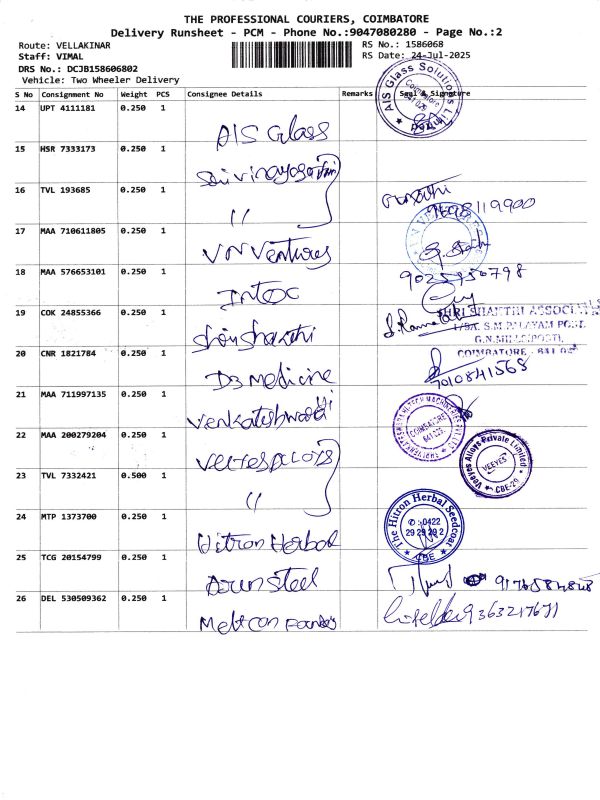 THE PROFESSIONAL COURIERS, COIMBATORE
Delivery Runsheet - PCM - Phone No.:9047080280 - Page No.:2
Route: VELLAKINAR
RS No.: 1586068
Staff: VIMAL
RS Date: 24-Jul-2025
DRS No.: DCJB158606802
Vehicle: Two Wheeler Delivery
S No Consignment No Weight PCS Consignee Details Remarks Seal & Signature
AIS Glass Solutions
14 UPT 4111181 0.250 1
AIS Glass
15 HSR 7333173 0.250 1
16 TVL 193685 0.250 1
"
17 MAA 710611805 0.250 1
VN Ventures
18 MAA 576653101 0.250 1
Intec
19 COK 24855366 0.250 1
SHRI SHANTHI ASSOCIATES
COIMBATORE
20 CNR 1821784 0.250 1
D3 Medicine
7010841568
21 MAA 711997135 0.250 1
COIMBATORE
22 MAA 200279204 0.250 1
Veeyes Alloys Private Limited
VEEYES
CBE-29
23 TVL 7332421 0.500 1
"
24 MTP 1373700 0.250 1
Hitron Herbal
The Hitron Herbal Seedcoat
0422
29 29 29 2
CBE
25 TCG 20154799 0.250 1
Arun Steel
26 DEL 530509362 0.250 1